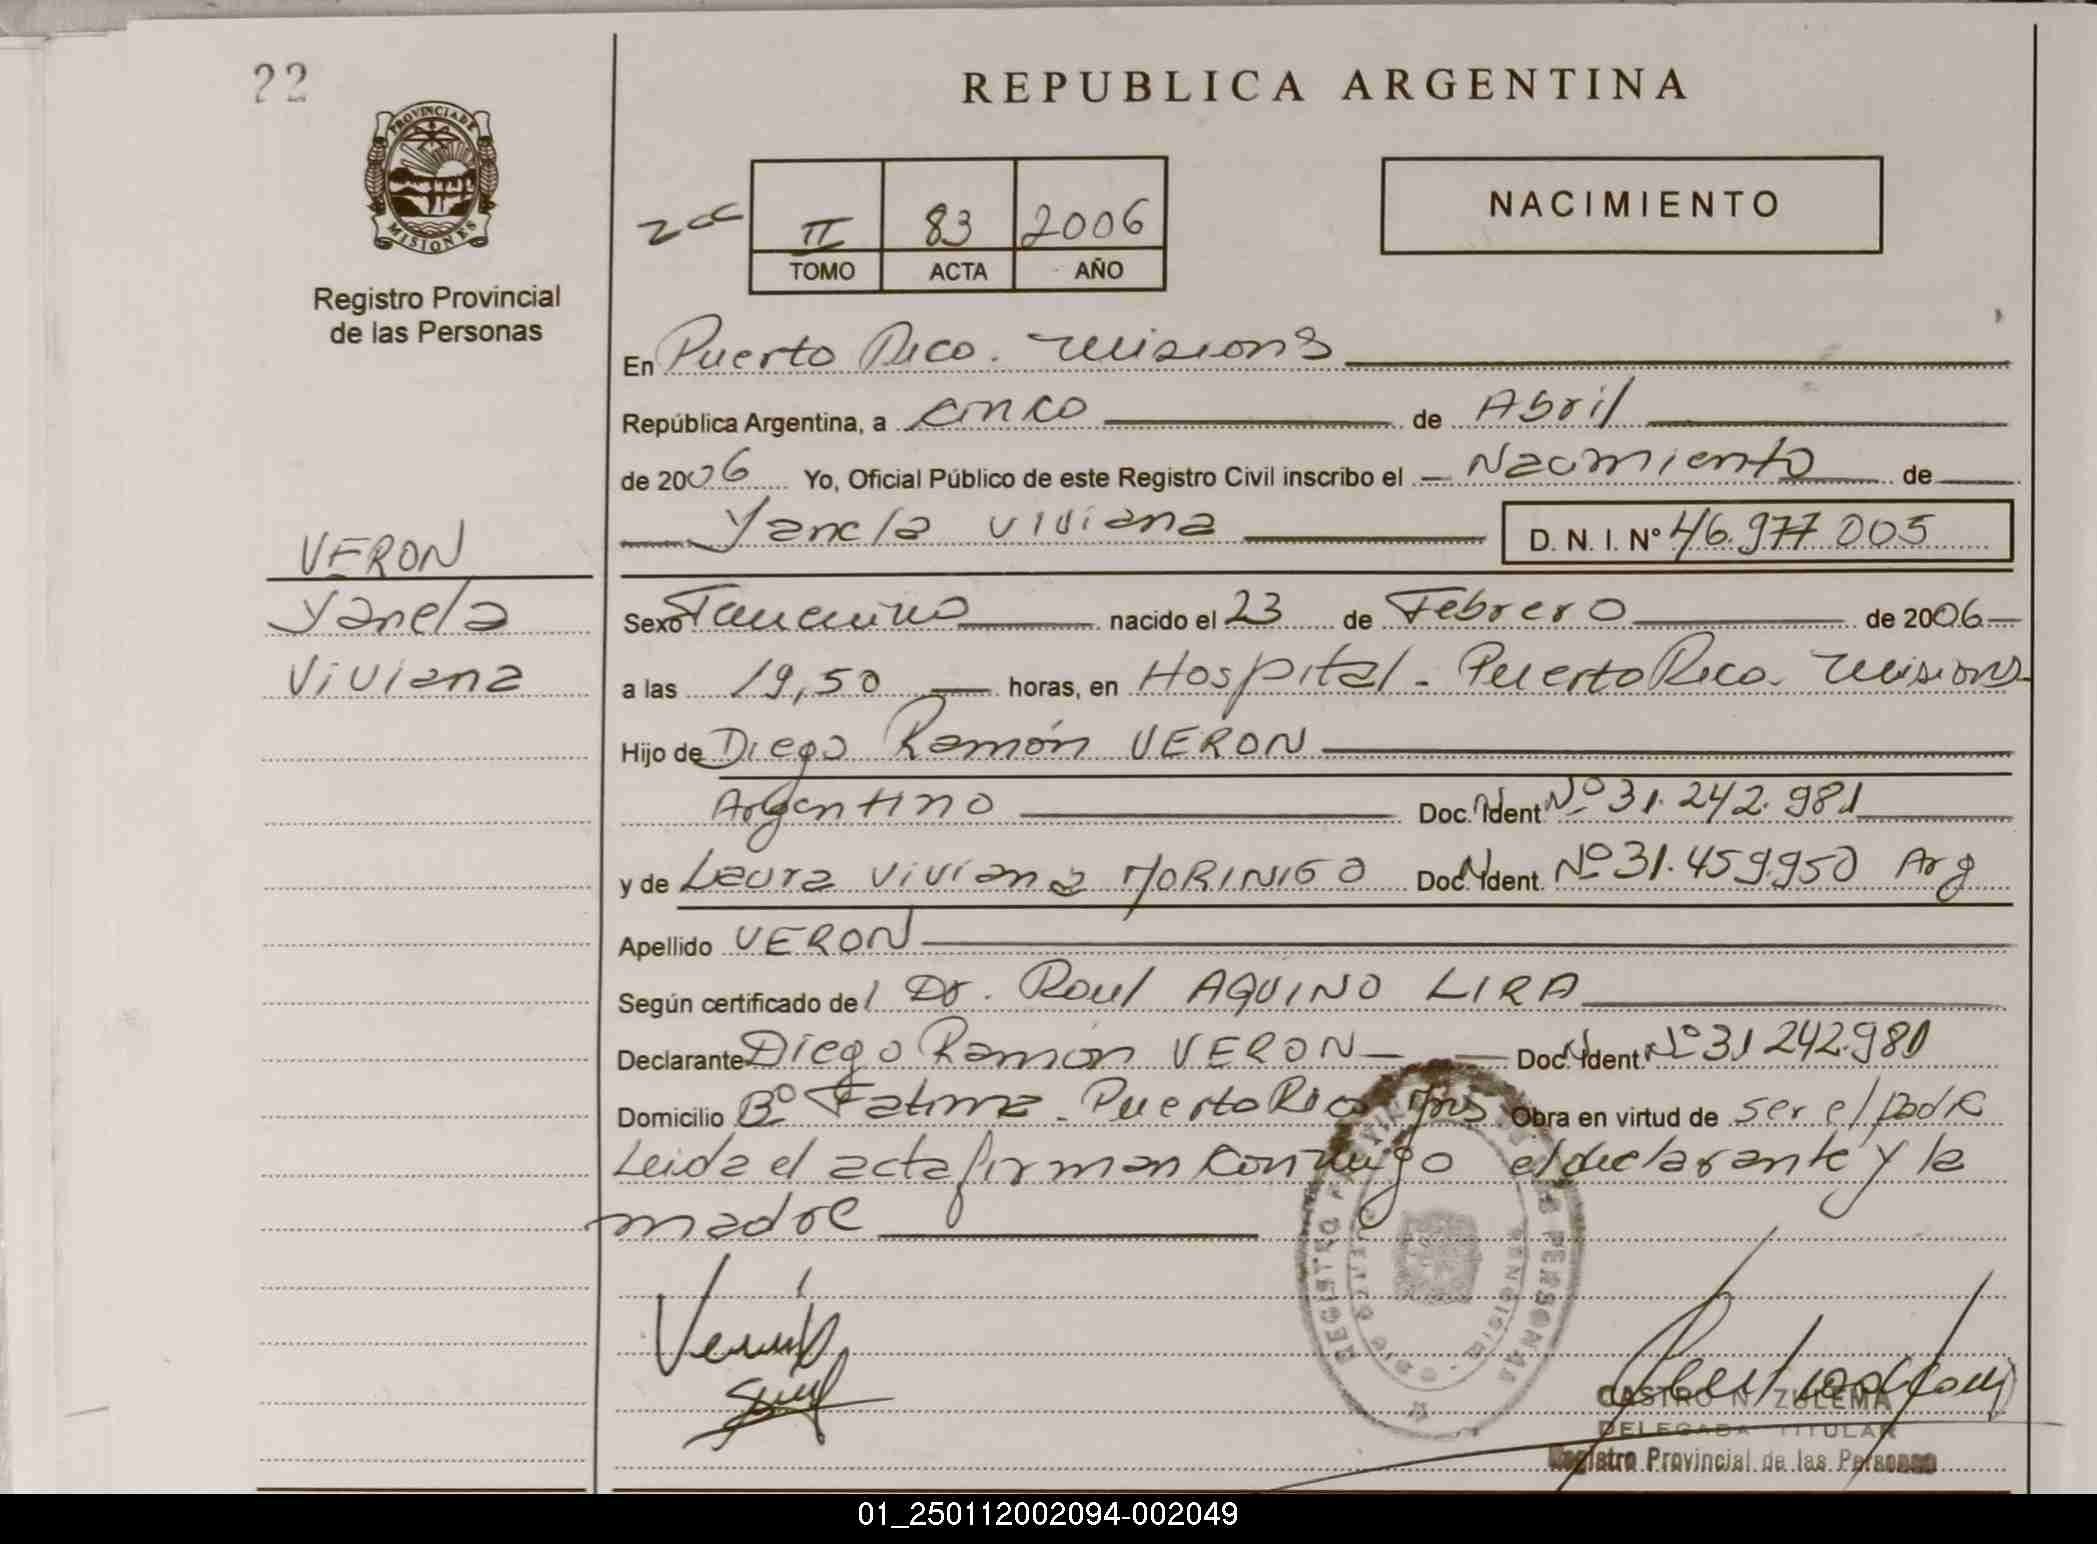 22
REPUBLICA ARGENTINA
PROVINCIA DE
MISIONES
Registro Provincial
de las Personas
II 83 2006
TOMO ACTA AÑO
NACIMIENTO
En Puerto Rico. Misiones
República Argentina, a cinco de Abril
de 2006 Yo, Oficial Público de este Registro Civil inscribo el Nacimiento de
Yanela Viviana D. N. I. Nº 46.977.005
VERON
Yanela
Viviana
Sexo Femenino nacido el 23 de Febrero de 2006
a las 19,50 horas, en Hospital - Puerto Rico. Misiones
Hijo de Diego Ramón VERON
Argentino Doc. Ident Nº 31.242.981
y de Laura Viviana MORINIGO Doc. Ident. Nº 31.459.950 Arg
Apellido VERON
Según certificado del Dr. Raul AQUINO LIRA
Declarante Diego Ramón VERON Doc. Ident. Nº 31 242.981
Domicilio Bº Fatima - Puerto Rico Mns Obra en virtud de ser el padre
Leida el acta firman conmigo el declarante y la
madre
REGISTRO PROVINCIAL DE LAS PERSONAS
CASTRO N. ZULEMA
DELEGADA TITULAR
Registro Provincial de las Personas
01_250112002094-002049